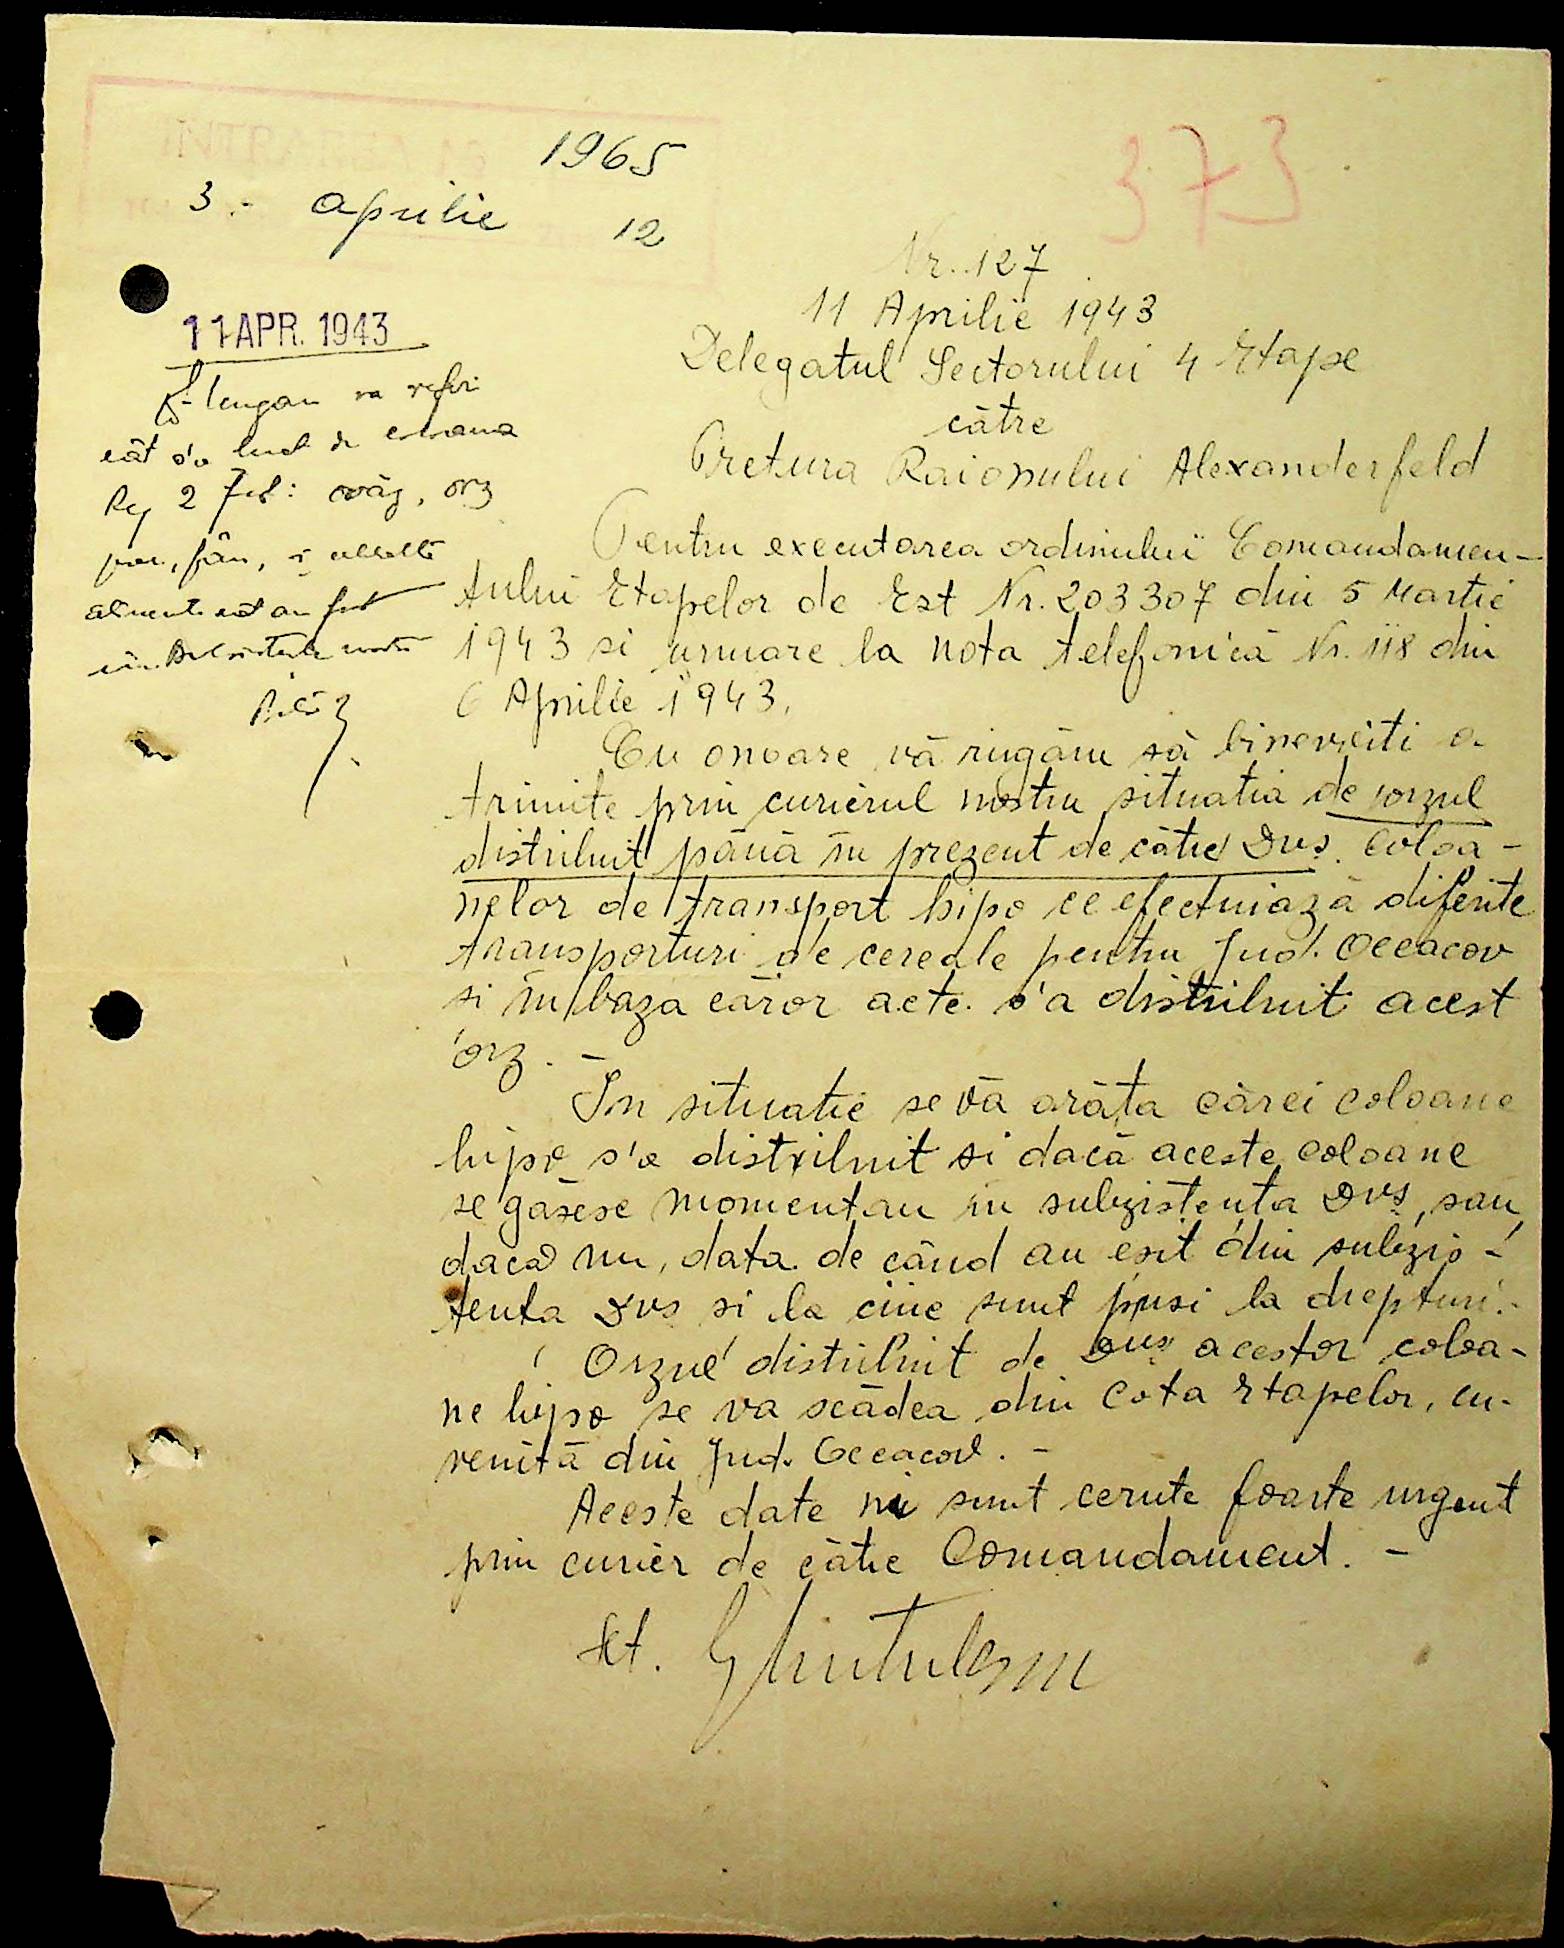 1965
3 - aprilie 12
373
Nr. 127
11 Aprilie 1943
Delegatul Sectorului 4 Etape
către
Pretura Raionului Alexanderfeld
11 APR. 1943
va referi
cât s'a luat de coloana
Reg 2 : ovăz, orz
fân, și
Pentru executarea ordinului Comandamen-
tului Etapelor de Est Nr. 203307 din 5 Martie
1943 si urmare la nota telefonică Nr. 118 din
6 Aprilie 1943.
Cu onoare vă rugăm să binevoiti a
trimite prin curierul nostru situatia de orzul
distribuit până în prezent de către Dvs. coloa-
nelor de transport hipo ce efectuiază diferite
transporturi de cereale pentru Jud. Oceacov
si în baza căror acte s'a distribuit acest
orz. -
In situatie se va arăta cărei coloane
hipo s'a distribuit si dacă aceste coloane
se găsesc momentan in subzistenta Dvs, sau
dacă nu, data de când au esit din subzis-
tenta Dvs si la cine sunt puși la drepturi. -
Orzul distribuit de Dvs acestor coloa-
ne hipo se va scădea din Cota Etapelor, cu-
venită din Jud. Oceacov. -
Aceste date ni sunt cerute foarte urgent
prin curier de către Comandament. -